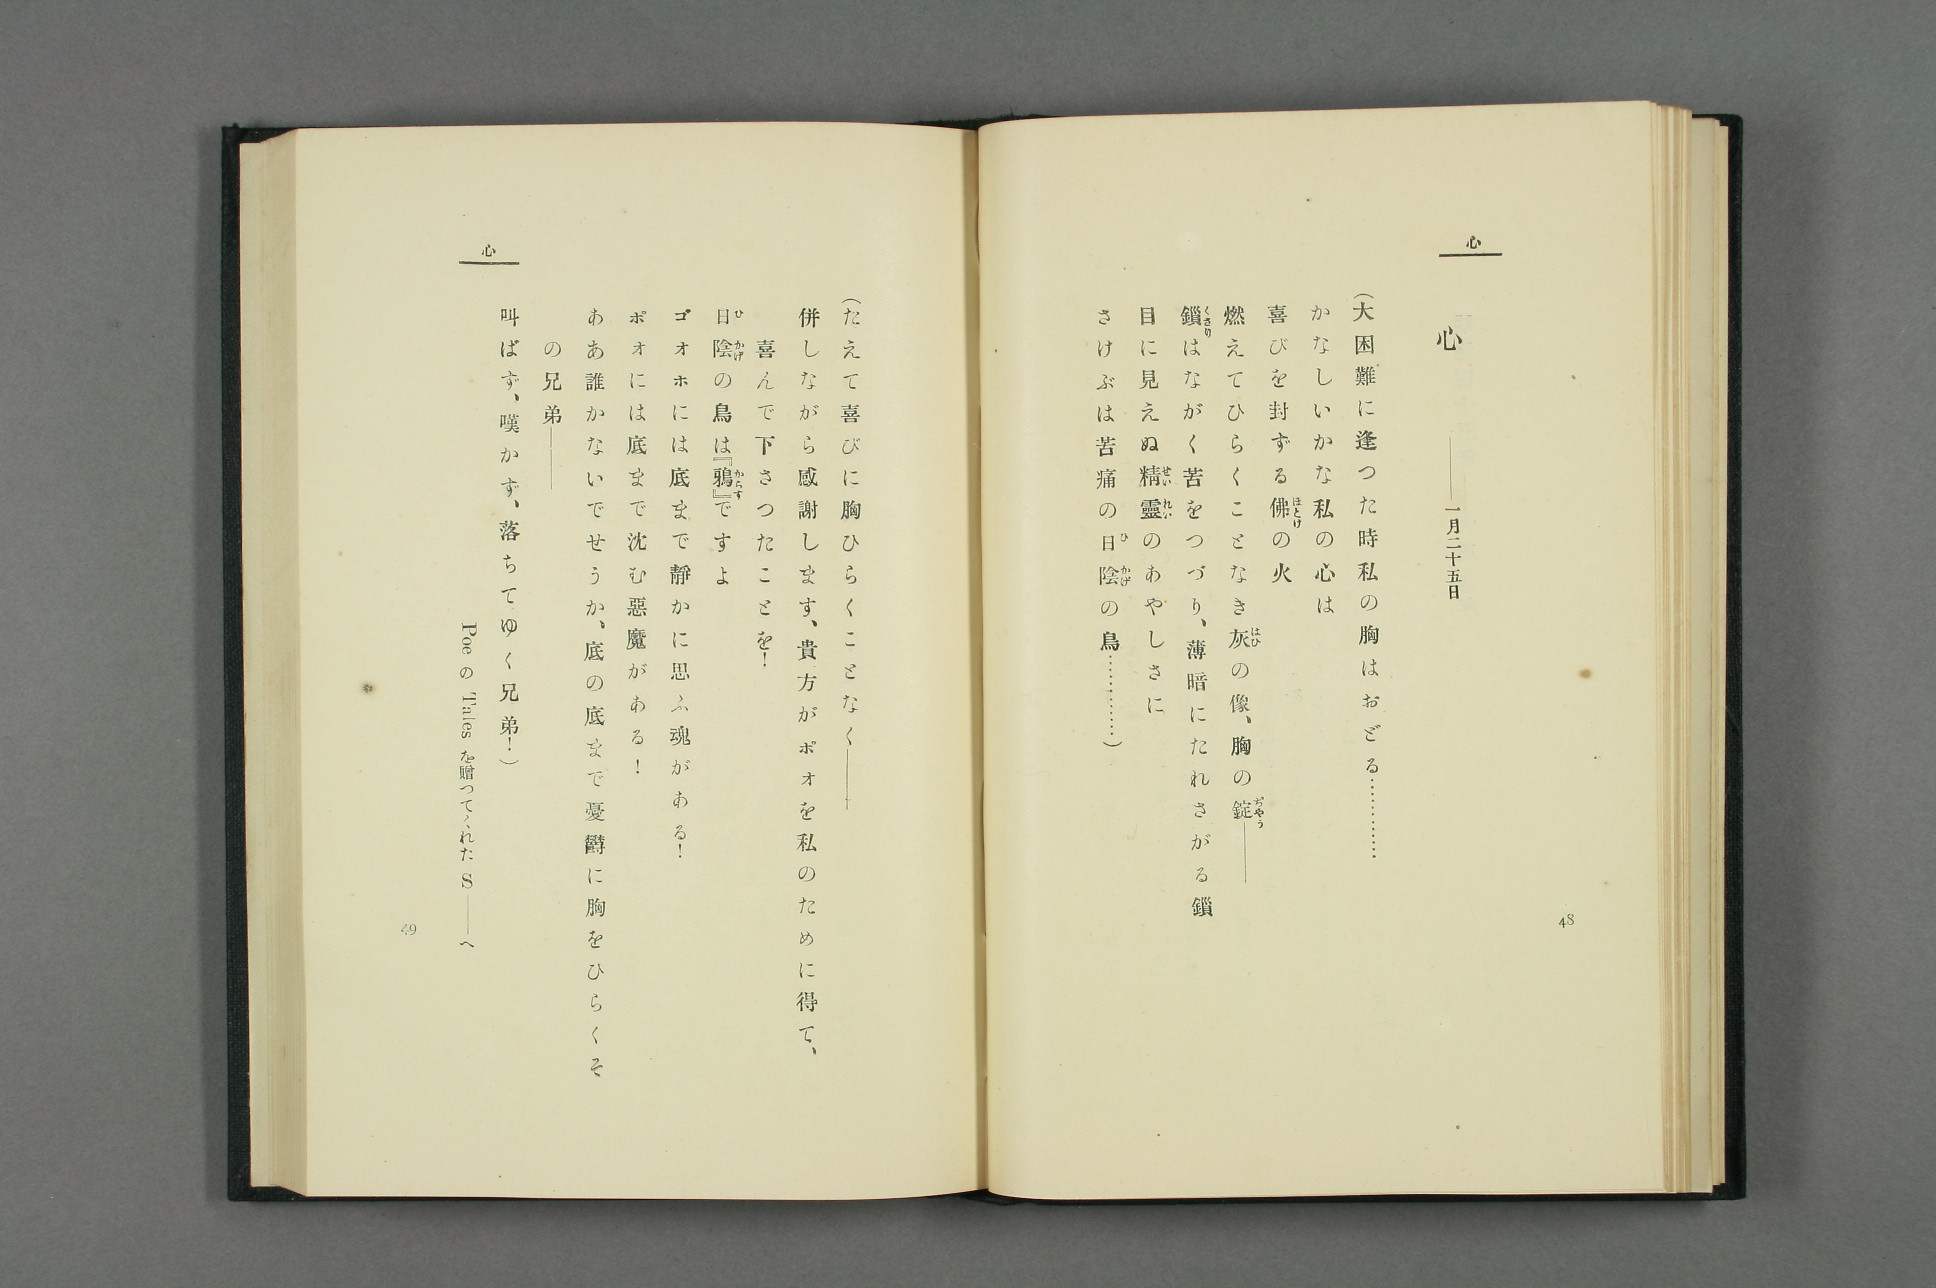 心
心 ――一月二十五日
(大困難に逢つた時私の胸はおどる…………
かなしいかな私の心は
喜びを封ずる佛の火
燃えてひらくことなき灰の像、胸の錠――
鎖はながく苦をつづり、薄暗にたれさがる鎖
目に見えぬ精靈のあやしさに
さけぶは苦痛の日陰の鳥…………)
48
心
(たえて喜びに胸ひらくことなく――
併しながら感謝します、貴方がポオを私のために得て、
喜んで下さつたことを!
日陰の鳥は『鴉』ですよ
ゴオホには底まで靜かに思ふ魂がある!
ポオには底まで沈む惡魔がある!
ああ誰かないでせうか、底の底まで憂欝に胸をひらくそ
の兄弟――
叫ばず、嘆かず、落ちてゆく兄弟!)
Poe の Tales を贈つてくれた S ――へ
49